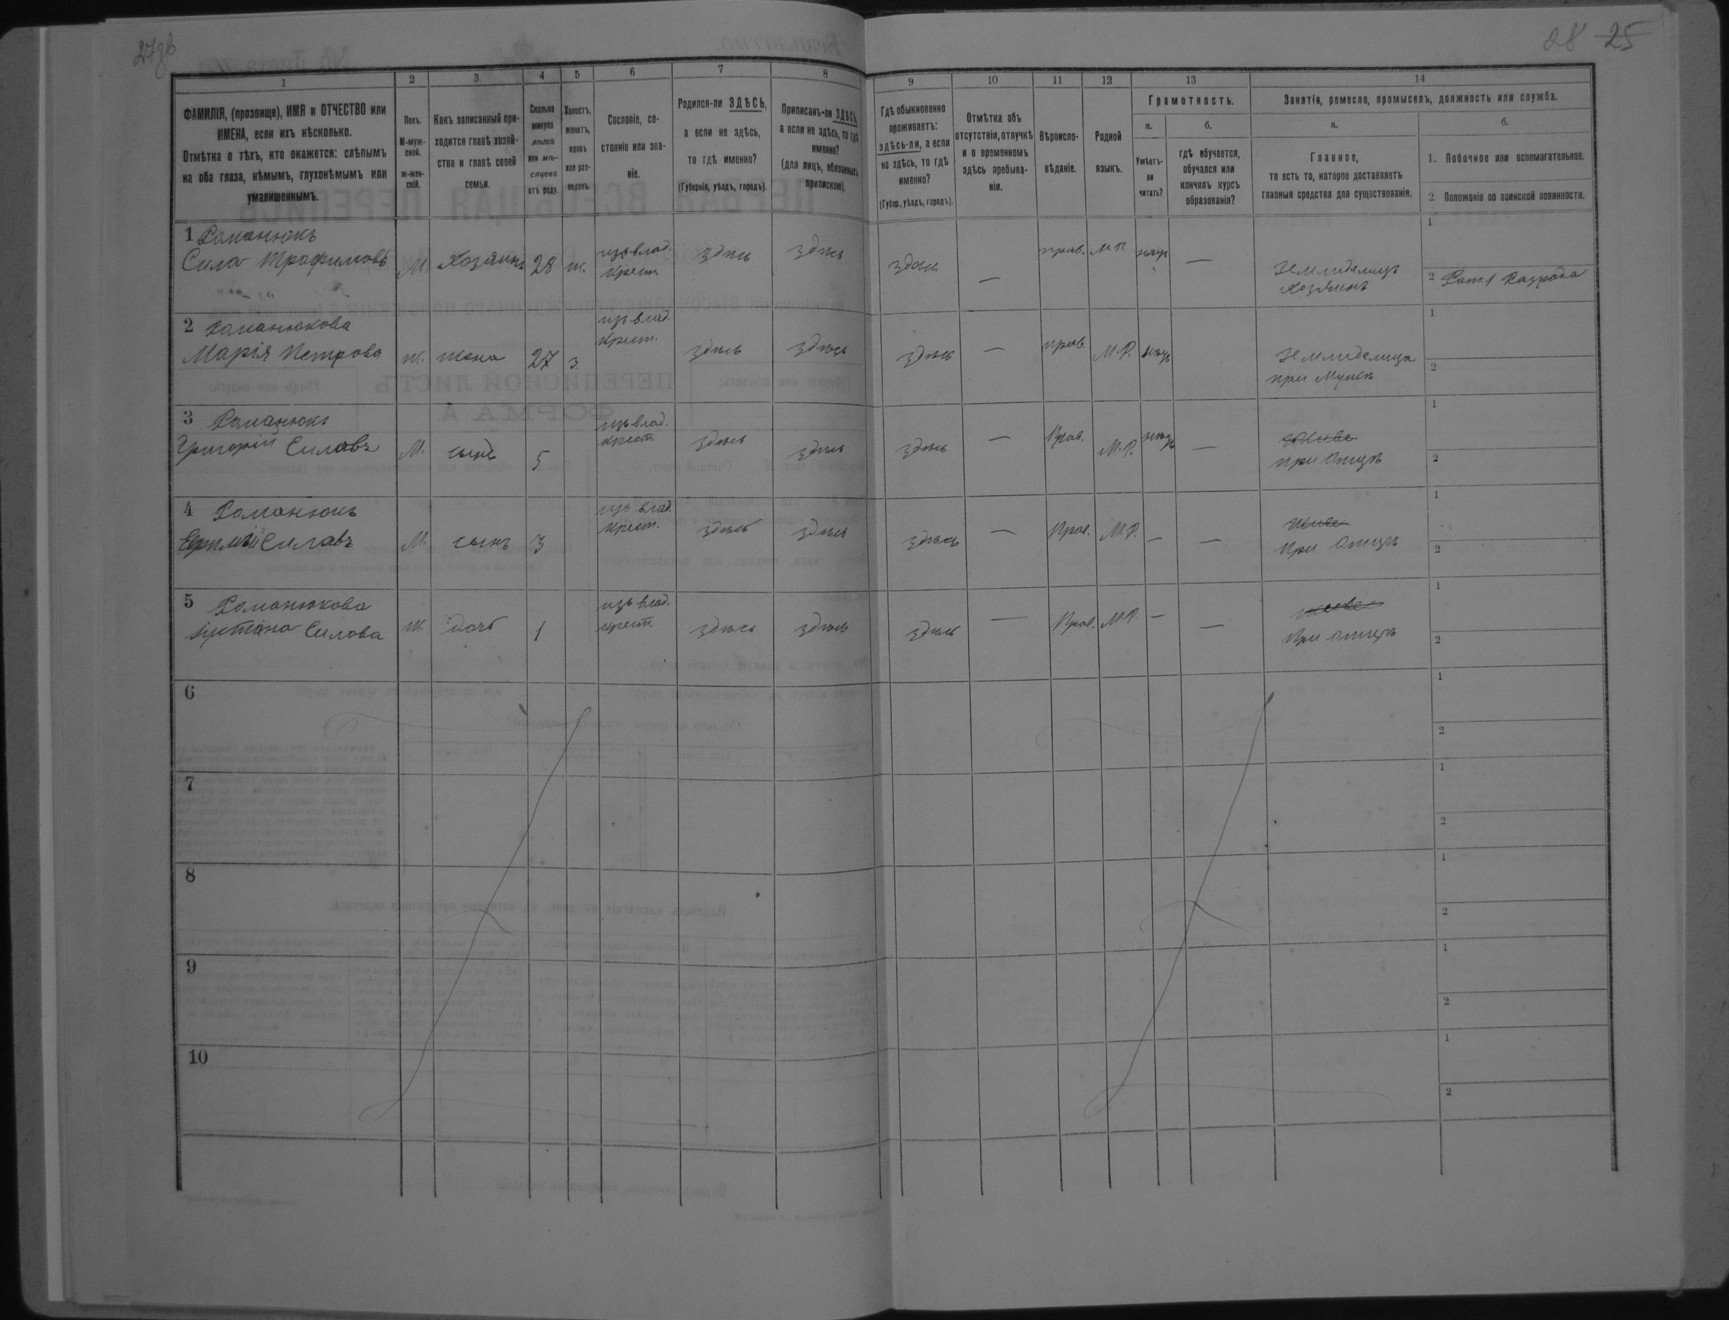 28 25
1
2
3
4
5
6
7
8
9
10
11
12
13
14
ФАМИЛІЯ, (прозвище), ИМЯ и ОТЧЕСТВО или
ИМЕНА, если ихъ нѣсколько.
Отмѣтка о тѣхъ, кто окажется: слѣпымъ
на оба глаза, нѣмымъ, глухонѣмымъ или
умалишеннымъ.
Полъ.
М-муж-
ской.
ж-жен-
скій.
Какъ записанный при-
ходится главѣ хозяй-
ства и главѣ своей
семьи.
Сколько
минуло
лѣтъ
или мѣ-
сяцевъ
отъ роду.
Холостъ,
женатъ,
вдовъ
или раз-
веденъ.
Сословіе, со-
стояніе или зва-
ніе.
Родился-ли ЗДѢСЬ,
а если не здѣсь,
то гдѣ именно?
(Губернія, уѣздъ, городъ).
Приписанъ-ли ЗДѢСЬ,
а если не здѣсь, то гдѣ
именно?
(для лицъ, обязанныхъ
припискою).
Гдѣ обыкновенно
проживаетъ:
здѣсь-ли, а если
не здѣсь, то гдѣ
именно?
(Губер., уѣздъ, городъ).
Отмѣтка объ
отсутствіи, отлучкѣ
и о временномъ
здѣсь пребыва-
ніи.
Вѣроиспо-
вѣданіе.
Родной
языкъ.
Грамотность.
а.
Умѣетъ-
ли
читать?
б.
гдѣ обучается,
обучался или
кончилъ курсъ
образованія?
Занятіе, ремесло, промыселъ, должность или служба.
а.
Главное,
то есть то, которое доставляетъ
главныя средства для существованія.
б.
1. Побочное или вспомогательное.
2 Положеніе по воинской повинности.
1 Романюкъ
Сила Трофимовъ
М. Хозяинъ 28 ж. изъ влад.
крест. здѣсь здѣсь здѣсь — прав. М.Р. —
Земледѣлецъ
Хозяинъ
1
2
2 Романюкова
Марія Петрова
ж. жена 27 з. изъ влад.
крест. здѣсь здѣсь здѣсь — прав. М.Р.
Земледѣлица
при Мужѣ
1
2
3 Романюкъ
Григорій Силовъ
М. сынъ 5 изъ влад.
крест. здѣсь здѣсь здѣсь — Прав. М.Р. —
при Отцѣ
1
2
4 Романюкъ
Силовъ
М. сынъ 3 изъ влад.
крест. здѣсь здѣсь здѣсь — Прав. М.Р. — —
При Отцѣ
1
2
5 Романюкова
Силова
ж. дочь 1 изъ влад.
крест. здѣсь здѣсь здѣсь — Прав. М.Р. — —
При отцѣ
1
2
6
1
2
7
1
2
8
1
2
9
1
2
10
1
2